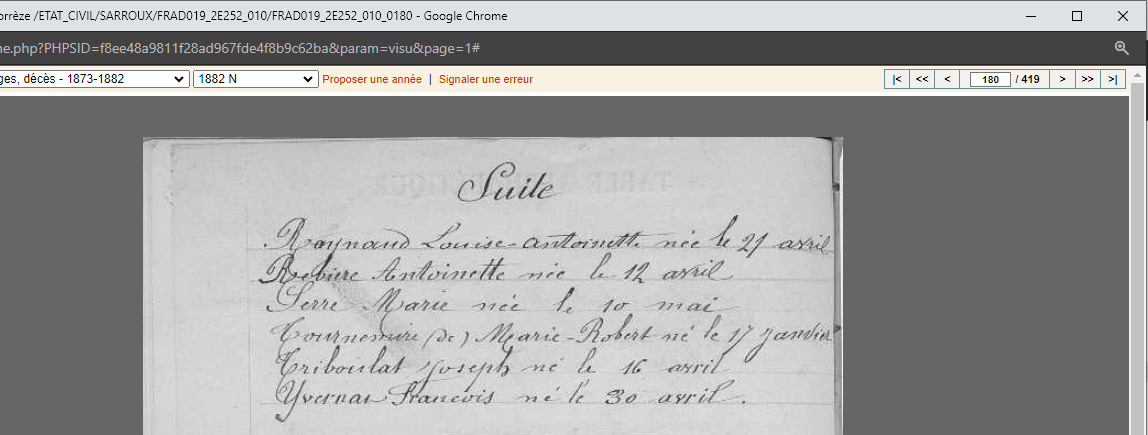 orrèze /ETAT_CIVIL/SARROUX/FRAD019_2E252_010/FRAD019_2E252_010_0180 - Google Chrome
ne.php?PHPSID=f8ee48a9811f28ad967fde4f8b9c62ba&param=visu&page=1#
ges, décès - 1873-1882 1882 N Proposer une année | Signaler une erreur |< << < 180 / 419 > >> >|
Suite
Raynaud Louise-Antoinette née le 21 avril
Rebière Antoinette née le 12 avril
Serre Marie née le 10 mai
Tournemire (de) Marie-Robert né le 17 janvier
Triboulat Joseph né le 16 avril
Yvernat François né le 30 avril.